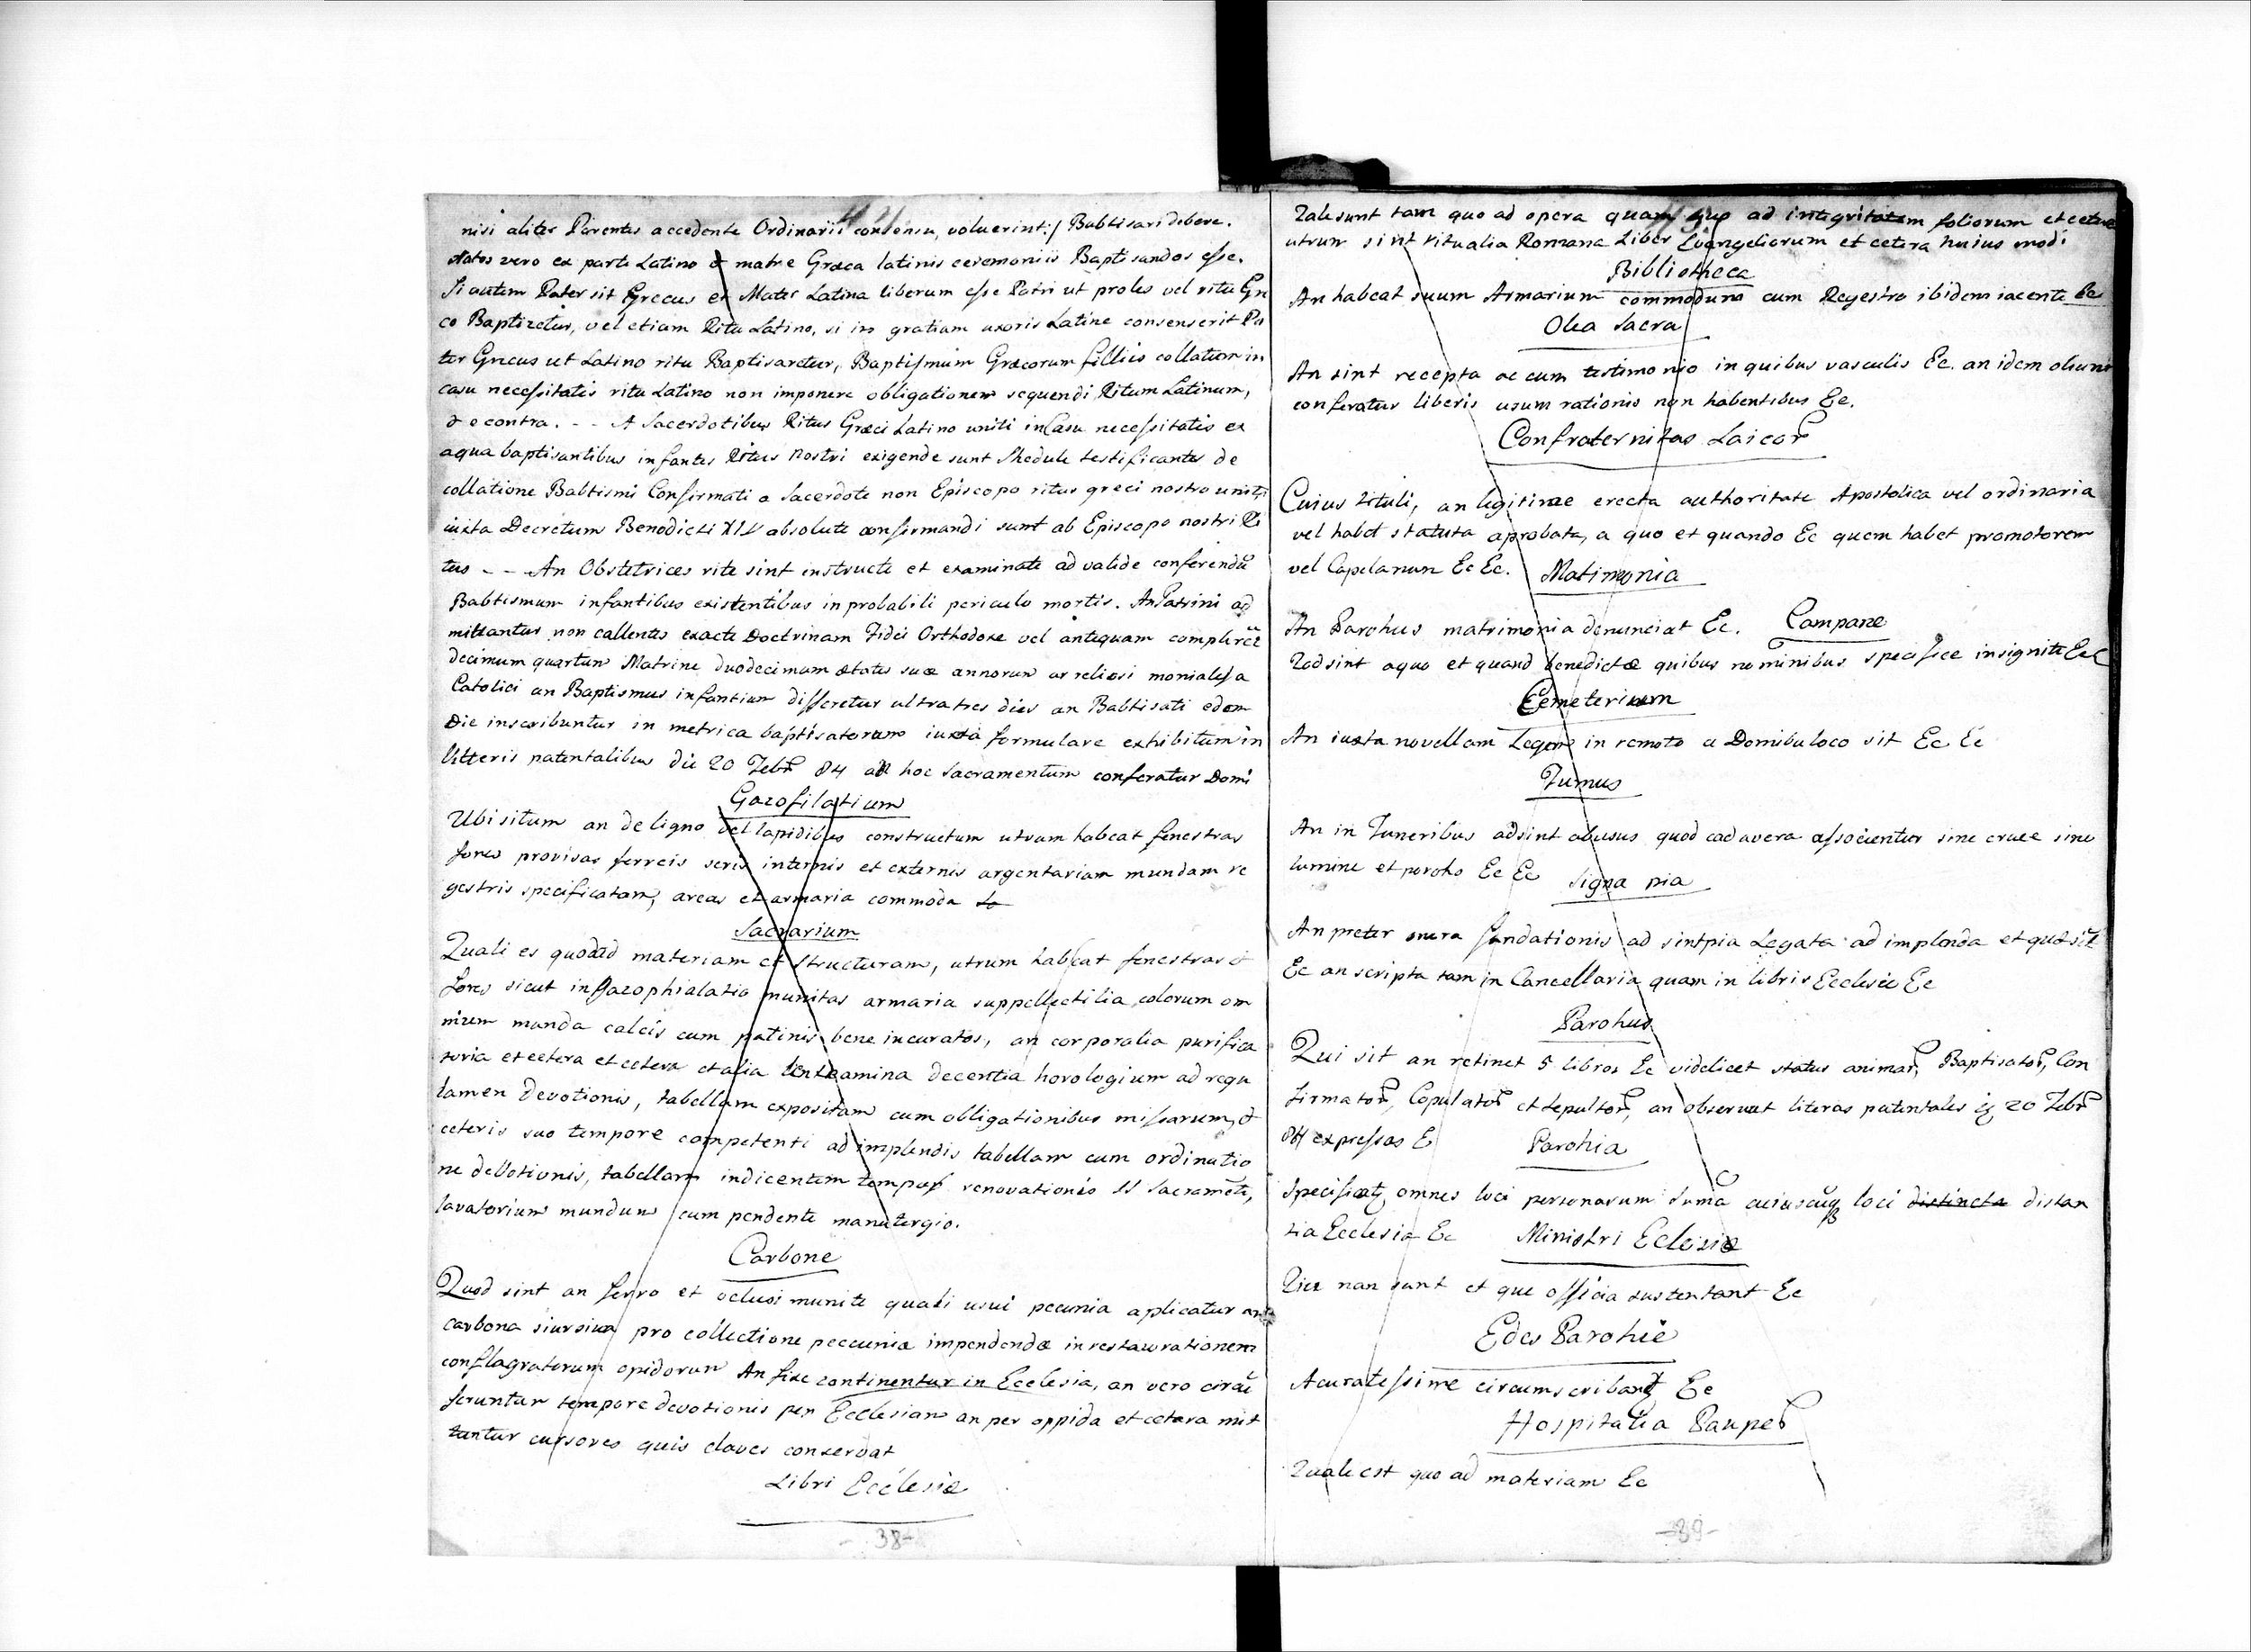 nisi aliter Parentes accedente Ordinarii consensu, voluerint :/ Babtisari debere.
Natos vero ex parte Latino & matre Græca latinis ceremoniis Baptisandos esse.
Si autem Pater sit Grecus et Mater Latina liberum esse Patri ut proles vel ritu Gre
co Baptizetur, vel etiam Ritu Latino, si in gratiam uxoris Latine consenserit Pa
ter Grecus ut Latino ritu Baptisaretur, Baptismum Græcorum filliis collatum in
casu necessitatis ritu Latino non imponere obligationem sequendi Ritum Latinum,
& e contra. - - A Sacerdotibus Ritus Græci Latino uniti in Casu necessitatis ex
aqua baptisantibus infantes Ritus nostri exigende sunt Shedule testificantes de
collatione Babtismi Confirmati a Sacerdote non Episcopo ritus greci nostro uniti
iuxta Decretum Benedicti XIV absolute confirmandi sunt ab Episcopo nostri Ri
tus - - An Obstetrices rite sint instructe et examinate ad valide conferendū
Babtismum infantibus existentibus in probabili periculo mortis. An Patrini ad
mittantur non callentes exacte Doctrinam Fidei Orthodoxe vel antequam complerēt
decimum quartum Matrine duodecimum ætatis suæ annorum
Catolici an Baptismus infantium differetur ultra tres dies an Babtisati edem
Die inscribuntur in metrica baptisatorum iuxta formulare exhibitum in
litteris patentalibus die 20 Febr 84 an hoc Sacramentum conferatur Domi
Gazofilatium
Ubi situm an de ligno vel lapidibus constructum utrum habeat fenestras
fores provisas ferreis seris internis et externis argentariam mundam re
gestris specificatam, arcas et armaria commoda
Sacrarium
Quali es quoad materiam et structuram, utrum habeat fenestras et
fores sicut in Gazophialatio munitas armaria suppellectilia colorum om
nium munda calcis cum patinis bene incuratos, an corporalia purifica
toria et cetera et cetera et alia linteamina decentia horologium ad regu
lamen devotionis, tabellam expositam cum obligationibus missarum, &
ceteris suo tempore competenti ad implendis tabellam cum ordinatio
ne devotionis, tabellam indicentem tempus renovationis SS Sacramēti,
lavatorium mundum cum pendente manutergio.
Carbone
Quod sint an ferro et oclusi munite quali usui pecunia aplicatur an
carbona pro collectione peccunia impendendæ in restaurationem
conflagratorum opidorum An fixe continentur in Ecclesia, an vero circū
feruntur tempore devotionis per Ecclesiam an per oppida et cetera mit
tantur cursores quis claves conservat
Libri Ecclesiæ
- 38 -
Tale sunt tam quo ad opera quam quo ad integritatem foliorum et cetera
utrum sint ritualia Romana Liber Evangeliorum et cetera huius modi
Bibliotheca
An habeat suum Armarium commodum cum Regestro ibidem iacente Ec
Olea Sacra
An sint recepta ac cum testimonio in quibus vasculis Ec. an idem oleum
conferatur liberis usum rationis non habentibus Ec.
Confraternitas Laicor
Cuius tituli, an legitime erecta authoritate Apostolica vel ordinaria
vel habet statuta aprobata, a quo et quando Ec quem habet promotorem
vel Capelanum Ec Ec. Matimonia
An Parohus matrimonia denunciat Ec. Campane
Quod sint a quo et quand benedictæ quibus nominibus specifice insignite Ec
Cemeterium
An iuxta novellam Legem in remoto a Domibus loco sit Ec Ec
Funus
An in Funeribus adsint abusus quod cadavera associentur sine cruce sine
lumine et paroho Ec Ec Signa pia
An preter onera fundationis ad sint pia Legata ad implenda et que sit
Ec an scripta tam in Cancellaria quam in libris Ecclesie Ec
Parohus
Qui sit an retinet 5 libros Ec videlicet status animar, Baptisator, Con
firmator, Copulator et Sepultor, an observat literas patentales 20 Febr
84 expressas E Parohia
Specificatq omnes loci personarum Suma cuiuscuq loci distincta distan
tia Ecclesia Ec Ministri Eclesiæ
Qui nan sunt et que officia sustentant Ec
Edes Parohie
Acuratessime circumscribantq Ec
Hospitalia Pauper
Quale est quo ad materiam Ec
- 39 -